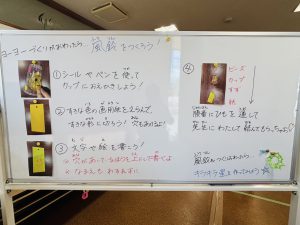 ヨーヨーづくりがおわったら 風鈴をつくろう！
①シールやペンを使って
カップにおえかきしよう！
②すきな色の画用紙をえらんで、
すきな形に切ろう！穴もあけるよ！
③文字や絵を書こう！
※穴があいているほうを上にして書いてね
※なまえも、わすれずに
④
ビーズ
カップ
すず
紙
順番にひもを通して
先生にわたして結んでもらっちゃおう！
風鈴をつくりおわったら
キラキラ星を作ってみよう